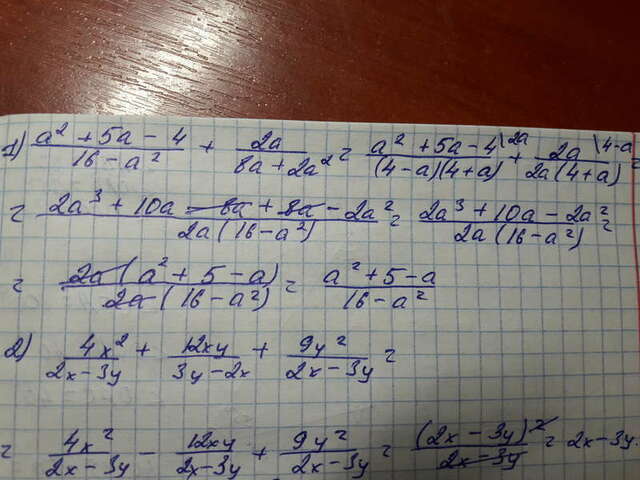 1) (a² + 5a - 4)/(16 - a²) + 2a/(8a + 2a²) = (a² + 5a - 4\2a)/((4-a)(4+a)) + (2a\4-a)/(2a(4+a)) =
= (2a³ + 10a - 8a + 8a - 2a²)/(2a(16 - a²)) = (2a³ + 10a - 2a²)/(2a(16 - a²)) =
= (2a(a² + 5 - a))/(2a(16 - a²)) = (a² + 5 - a)/(16 - a²)
2) 4x²/(2x - 3y) + 12xy/(3y - 2x) + 9y²/(2x - 3y) =
= 4x²/(2x - 3y) - 12xy/(2x - 3y) + 9y²/(2x - 3y) = (2x - 3y)²/(2x - 3y) = 2x - 3y.